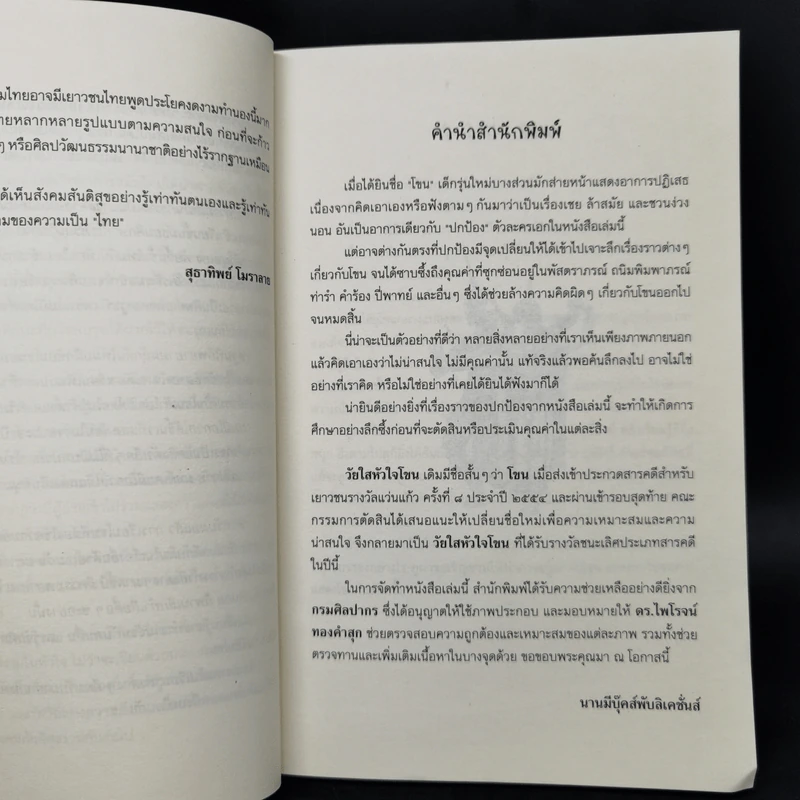 มไทยอาจมีเยาวชนไทยพูดประโยคงดงามทำนองนี้มาก
ายหลากหลายรูปแบบตามความสนใจ ก่อนที่จะก้าว
ๆ หรือศิลปวัฒนธรรมนานาชาติอย่างไร้รากฐานเหมือน
ด้เห็นสังคมสันติสุขอย่างรู้เท่าทันตนเองและรู้เท่าทัน
ามของความเป็น "ไทย"
สุธาทิพย์ โมราลาย
คำนำสำนักพิมพ์
เมื่อได้ยินชื่อ "โขน" เด็กรุ่นใหม่บางส่วนมักส่ายหน้าแสดงอาการปฏิเสธ
เนื่องจากคิดเอาเองหรือฟังตาม ๆ กันมาว่าเป็นเรื่องเชย ล้าสมัย และชวนง่วง
นอน อันเป็นอาการเดียวกับ "ปกป้อง" ตัวละครเอกในหนังสือเล่มนี้
แต่อาจต่างกันตรงที่ปกป้องมีจุดเปลี่ยนให้ได้เข้าไปเจาะลึกเรื่องราวต่าง ๆ
เกี่ยวกับโขน จนได้ซาบซึ้งถึงคุณค่าที่ซุกซ่อนอยู่ในพัสตราภรณ์ ถนิมพิมพาภรณ์
ท่ารำ คำร้อง ปี่พาทย์ และอื่น ๆ ซึ่งได้ช่วยล้างความคิดผิด ๆ เกี่ยวกับโขนออกไป
จนหมดสิ้น
นี่น่าจะเป็นตัวอย่างที่ดีว่า หลายสิ่งหลายอย่างที่เราเห็นเพียงภาพภายนอก
แล้วคิดเอาเองว่าไม่น่าสนใจ ไม่มีคุณค่านั้น แท้จริงแล้วพอค้นลึกลงไป อาจไม่ใช่
อย่างที่เราคิด หรือไม่ใช่อย่างที่เคยได้ยินได้ฟังมาก็ได้
น่ายินดีอย่างยิ่งที่เรื่องราวของปกป้องจากหนังสือเล่มนี้ จะทำให้เกิดการ
ศึกษาอย่างลึกซึ้งก่อนที่จะตัดสินหรือประเมินคุณค่าในแต่ละสิ่ง
วัยใสหัวใจโขน เดิมมีชื่อสั้น ๆ ว่า โขน เมื่อส่งเข้าประกวดสารคดีสำหรับ
เยาวชนรางวัลแว่นแก้ว ครั้งที่ ๘ ประจำปี ๒๕๕๔ และผ่านเข้ารอบสุดท้าย คณะ
กรรมการตัดสินได้เสนอแนะให้เปลี่ยนชื่อใหม่เพื่อความเหมาะสมและความ
น่าสนใจ จึงกลายมาเป็น วัยใสหัวใจโขน ที่ได้รับรางวัลชนะเลิศประเภทสารคดี
ในปีนี้
ในการจัดทำหนังสือเล่มนี้ สำนักพิมพ์ได้รับความช่วยเหลืออย่างดียิ่งจาก
กรมศิลปากร ซึ่งได้อนุญาตให้ใช้ภาพประกอบ และมอบหมายให้ ดร.ไพโรจน์
ทองคำสุก ช่วยตรวจสอบความถูกต้องและเหมาะสมของแต่ละภาพ รวมทั้งช่วย
ตรวจทานและเพิ่มเติมเนื้อหาในบางจุดด้วย ขอขอบพระคุณมา ณ โอกาสนี้
นานมีบุ๊คส์พับลิเคชั่นส์